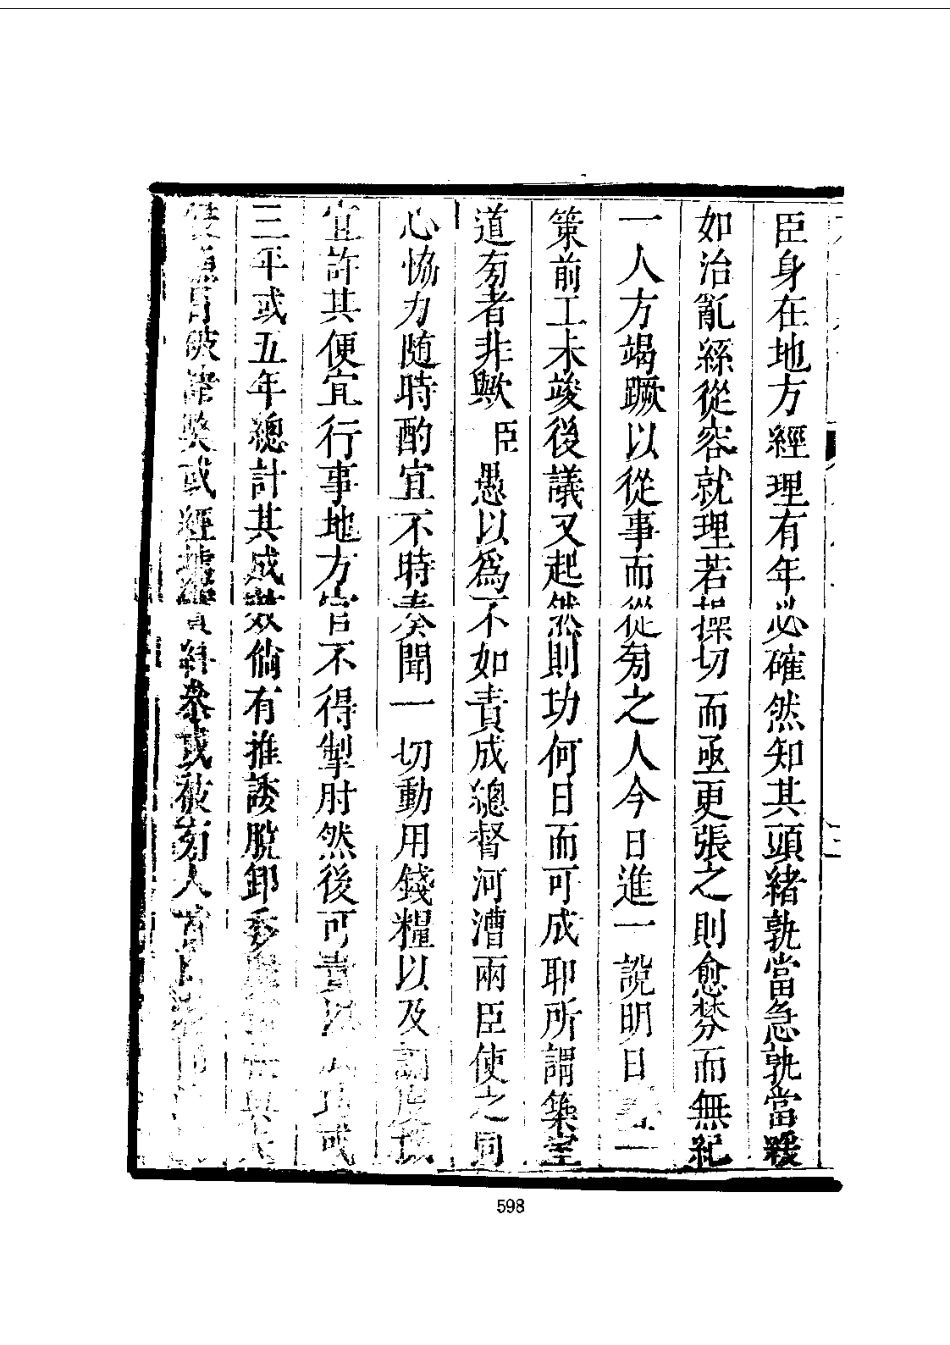 臣身在地方經理有年必確然知其頭緒孰當急孰當緩
如治亂絲從容就理若操切而亟更張之則愈棼而無紀
一人方竭蹶以從事而從旁之人今日進一說明日一
策前工未竣後議又起然則功何日而可成耶所謂築室
道旁者非歟臣愚以為不如責成總督河漕兩臣使之同
心恊力随時酌宜不時奏聞一切動用錢糧以及調度
宜許其便宜行事地方官不得掣肘然後可責或
三年或五年總計其成效倘有推諉脫卸委
冒破諸獘或經參或被旁人
598